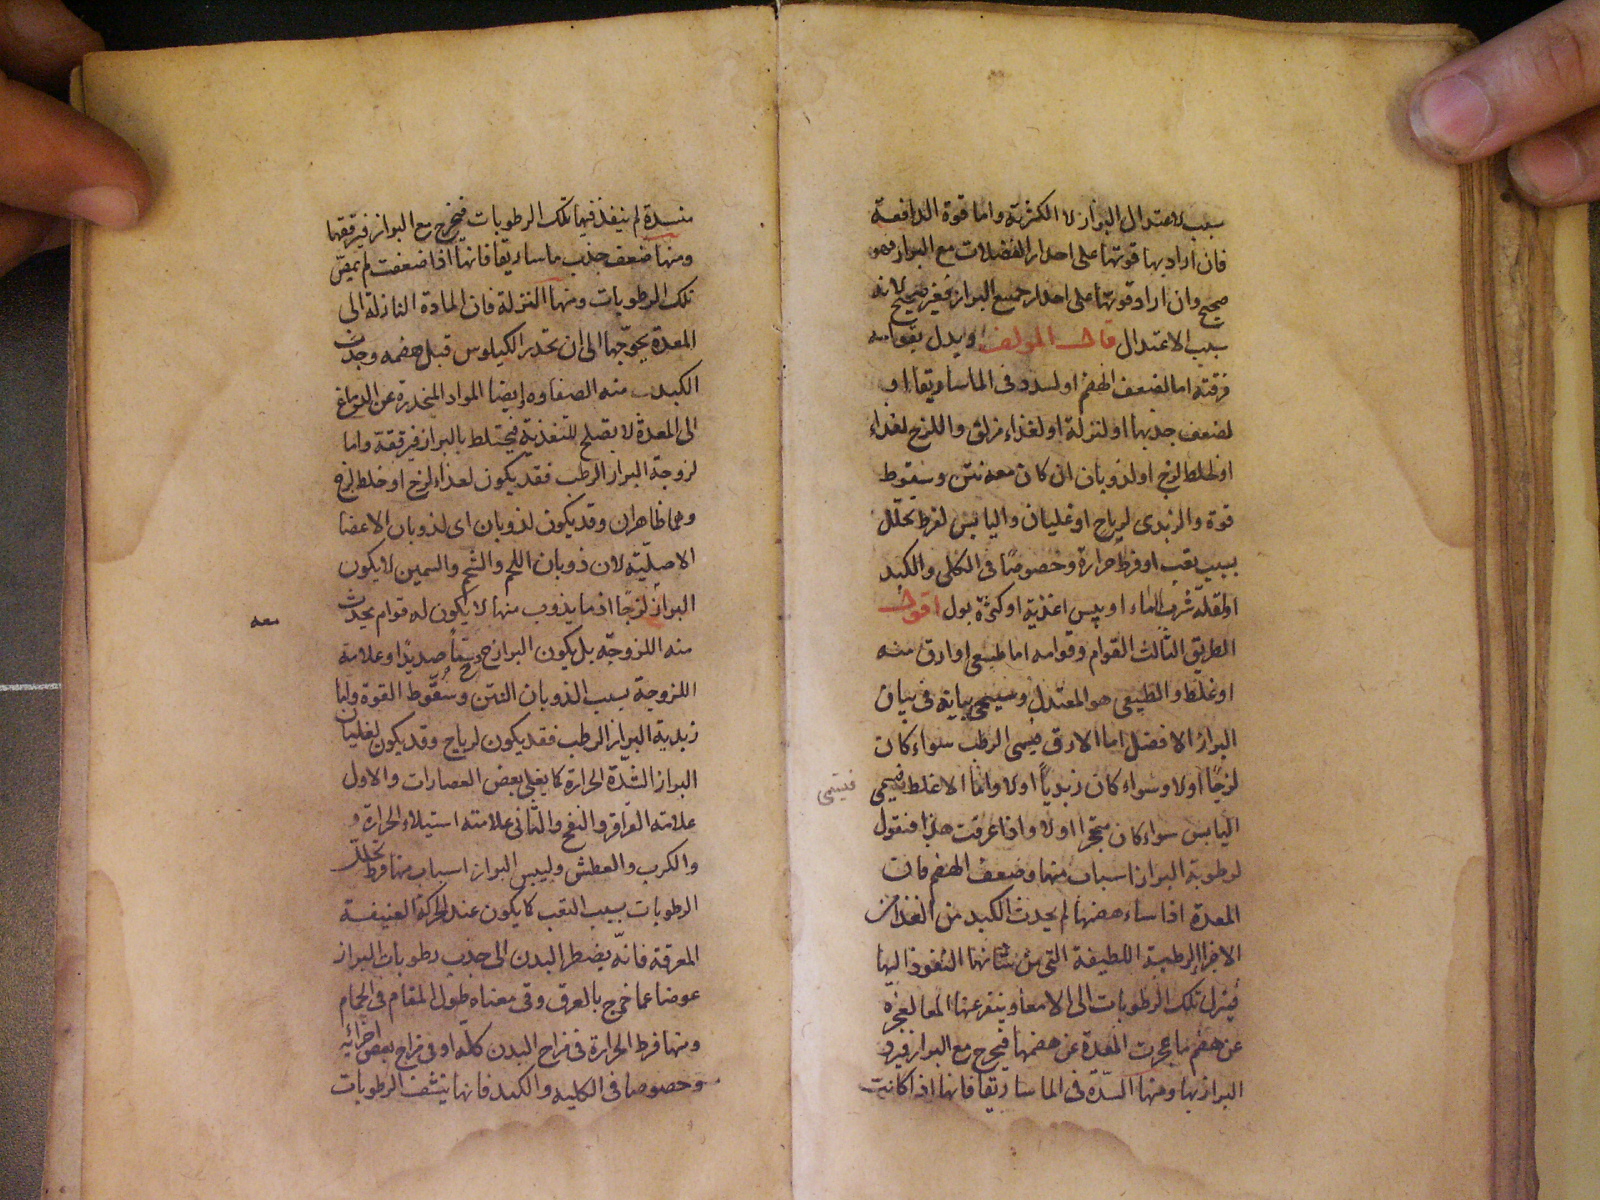 سبب لاعتدال البراز لا لكثرته واما قوة الدافعة
فان اراد بها قوتها على احدار الفضلات مع البراز فهو
صحيح وان اراد قوتها على احدار جميع البراز فغير صحيح لانه
سبب الاعتدال قال المولف ويدل بقوامه
فرقته اما لضعف الهضم او لسدد فى الماساريقا او
لضعف جذبها او لنزلة او لغذاء مزلق واللزج لغذاء
او لخلط لزج او لذوبان ان كان معه نتن وسقوط
قوة والزبدى لرياح او غليان واليابس لفرط تحلل
بسبب تعب او فرط حرارة وخصوصًا فى الكلى والكبد
او لقلة شرب الماء او يبس اغذية او كثرة بول اقول
الطريق الثالث القوام وقوامه اما طبيعى او ارق منه
او غلظ والطبيعى هو المعتدل وسيجى بيانه فى بيان
البراز الافضل اما الارق فيسمى الرطب سواء كان
لزجًا اولا وسواء كان زبدياً اولا واما الاغلظ فيسمى
فيسمى
اليابس سواء كان متحجرا اولا واذا عرفت هذا فنقول
لرطوبة البراز اسباب منها ضعف الهضم فان
المعدة اذا ساء هضمها لم يجذب الكبد من الغذاء
الاجزاء الرطبة اللطيفة التى من شانها النفوذ اليها
فينزل تلك الرطوبات الى الامعا عنها المعا لعجزه
عن هضم ما عجزت المعدة عن هضمها فيخرج مع البراز فيرق
البراز بها ومنها السدة فى الماساريقا فانها اذا كانت
منسدة لم ينفذ فيها تلك الرطوبات فيخرج مع البراز فيرققها
ومنها ضعف جذب ماساريقا فانها اذا ضعفت لم يمص
تلك الرطوبات ومنها النزلة فان المادة النازلة الى
المعدة يحوجها الى ان تحدر الكيلوس قبل هضمه وجذب
الكبد منه الصفاوه وايضا المواد المنحدرة عن الدماغ
الى المعدة لا يصلح للتغذية فيختلط بالبراز فيرققه واما
لزوجة البراز الرطب فقد يكون لغذاء لزج او خلط لزج
وهما ظاهران وقد يكون لذوبان اى لذوبان الاعضا
الاصليّة لان ذوبان اللحم والشحم والسمين لا يكون
البراز لزجًا اذ ما يذوب منها لا يكون له قوام يحدث
معه
منه اللزوجة بل يكون البراز ح صديدًا وعلامة
اللزوجة بسبب الذوبان النتن وسقوط القوة واما
زبدية البراز الرطب فقد يكون لرياح وقد يكون لغليان
البراز الشدّة الحرارة كما يغلى بعض العصارات والاول
علامته القراقر والنفخ والثانى علامته استيلاء الحرارة و
والكرب والعطش وليبس البراز اسباب منها فرط تحلل
الرطوبات بسبب التعب كما يكون عند الحركة العنيفة
المعرقة فانه يضطر البدن الى جذب رطوبات البراز
عوضا عما خرج بالعرق وفى معناه طول المقام فى الحمام
ومنها فرط الحرارة فى مزاج البدن كله او فى مزاج بعض اجزائه
وخصوصا فى الكليه والكبد فانها ينشف الرطوبات